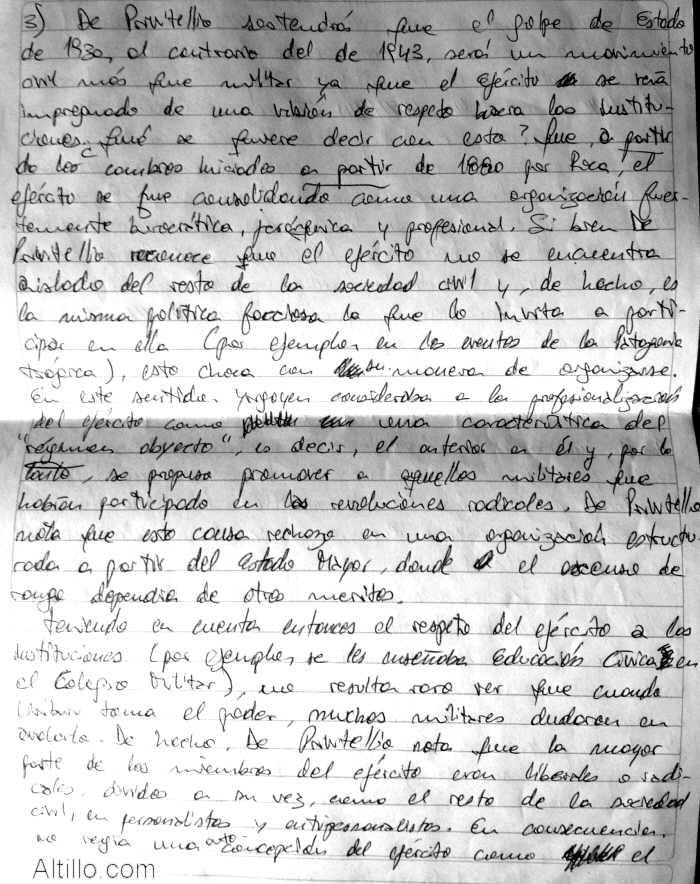 3) De Privitellio sostendrás que el golpe de Estado
de 1930, al contrario del de 1943, será un movimiento
civil más que militar ya que el ejército se verá
impregnado de una visión de respeto hacia las institu-
ciones. ¿Qué se quiere decir con esto? Que, a partir
de los cambios iniciados a partir de 1880 por Roca, el
ejército se fue consolidando como una organización fuer-
temente burocrática, jerárquica y profesional. Si bien De
Privitellio reconoce que el ejército no se encuentra
aislado del resto de la sociedad civil y, de hecho, es
la misma política facciosa la que lo invita a parti-
cipar en ella (por ejemplo, en los eventos de la Patagonia
trágica), esto choca con su manera de organizarse.
En este sentido, Yrigoyen consideraba a la profesionalización
del ejército como una característica del
"régimen abyecto", es decir, el anterior a él y, por lo
tanto, se propuso promover a aquellos militares que
habían participado en las revoluciones radicales. De Privitellio
nota que esto causa rechazo en una organización estructu-
rada a partir del Estado Mayor, donde el ascenso de
rango dependía de otros meritos.
Teniendo en cuenta entonces el respeto del ejército a las
instituciones (por ejemplo, se les enseñaba Educación Cívica en
el Colegio Militar), no resulta raro ver que cuando
Uriburu toma el poder, muchos militares dudaron en
avalarlo. De hecho, De Privitellio nota que la mayor
parte de los miembros del ejército eran liberales o radi-
cales, divididos a su vez, como el resto de la sociedad
civil, en personalistas y antipersonalistas. En consecuencia,
no regía una autoconcepción del ejército como el
Altillo.com